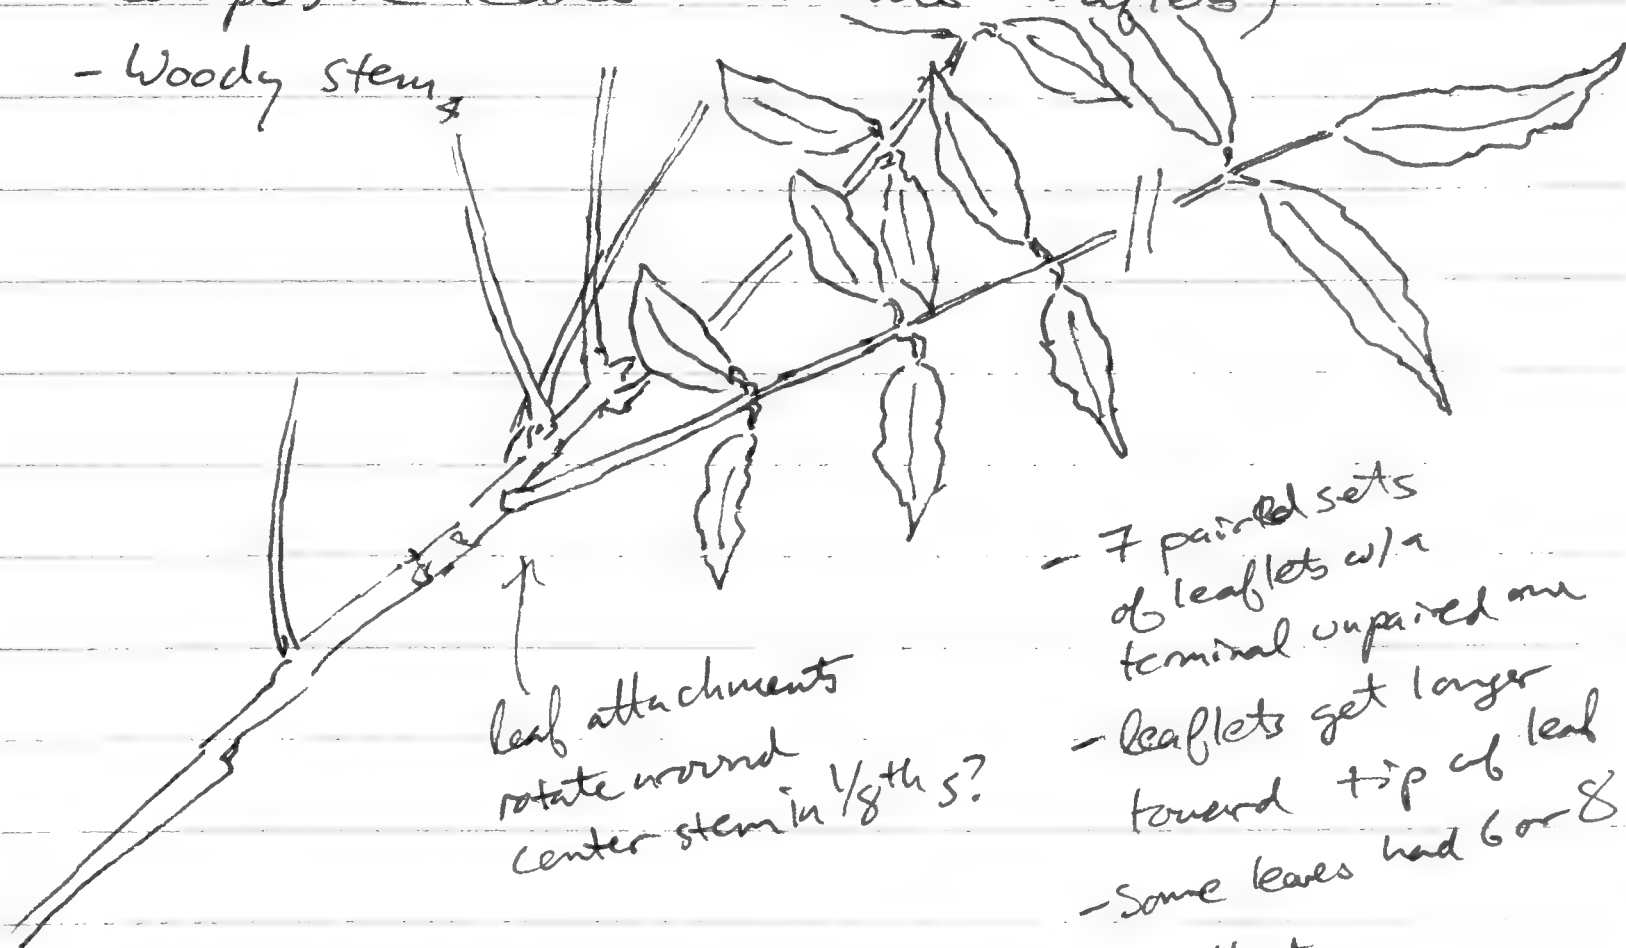 - Woody stems
leaf attachments
rotate around
center stem in 1/8th s?
- 7 paired sets
of leaflets w/a
terminal unpaired one
- leaflets get longer
toward tip of leaf
- Some leaves had 6 or 8